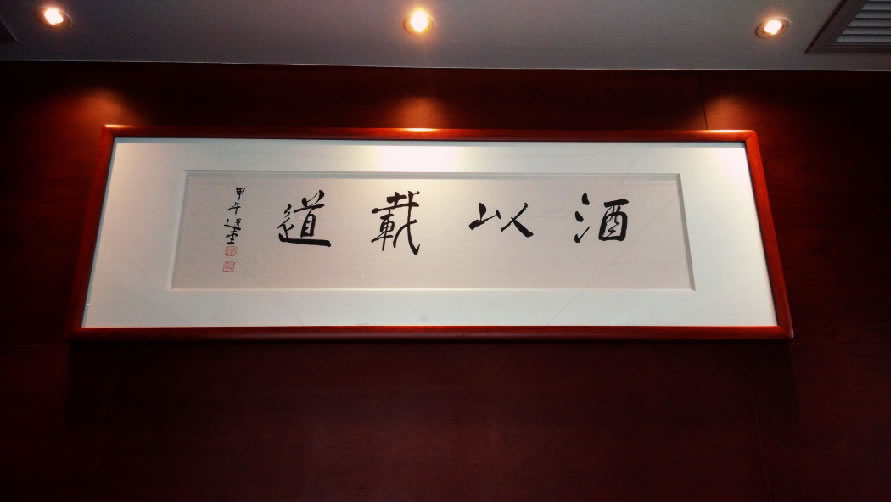 酒以載道
甲午